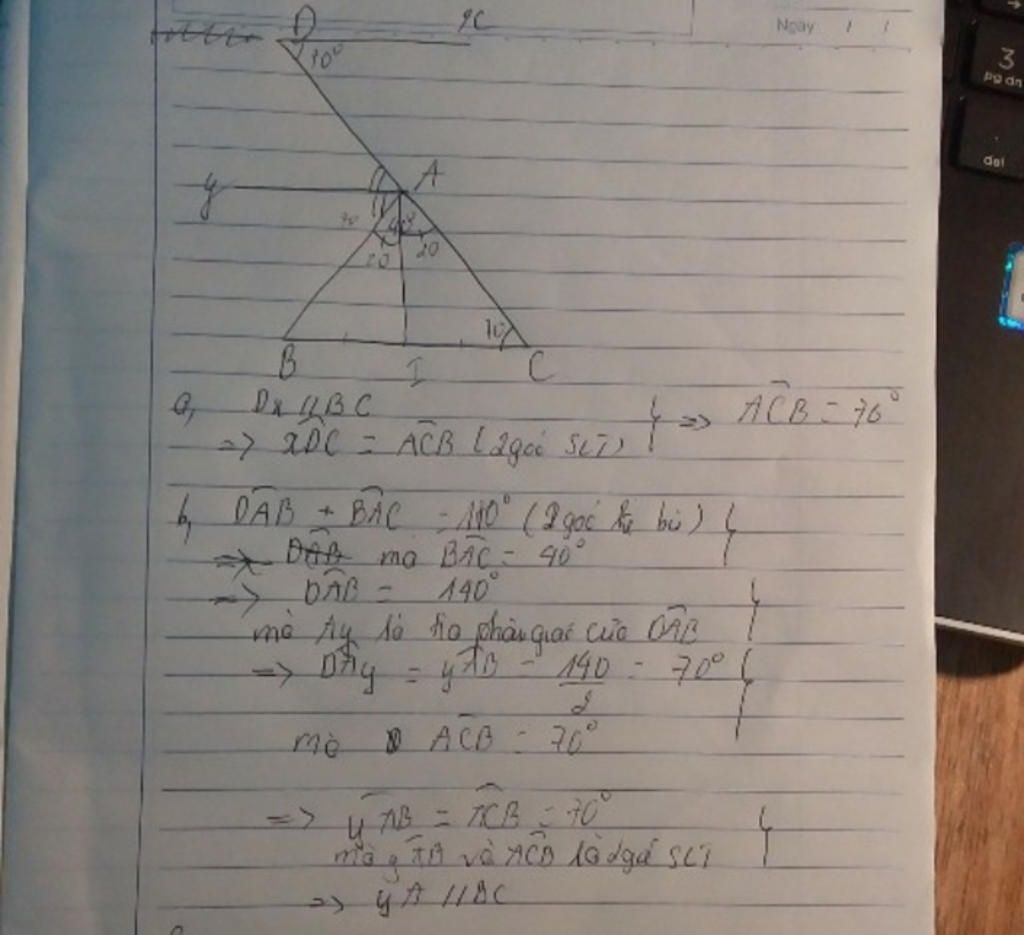 Ngày / /
3
pg dn
del
D x
70°
y A
40
20 20
70
B I C
a, Dx // BC
=> xDC = ACB (2 góc SLT) } => ACB = 70°
b, DAB + BAC = 180° (2 góc kề bù)
=> DAB mà BAC = 40°
=> DAB = 140°
mà Ay là tia phân giác của DAB
=> DAy = yAB = 140/2 = 70°
mà ACB = 70°
=> yAB = ACB = 70°
mà yAB và ACB là 2 góc SLT
=> yA // BC